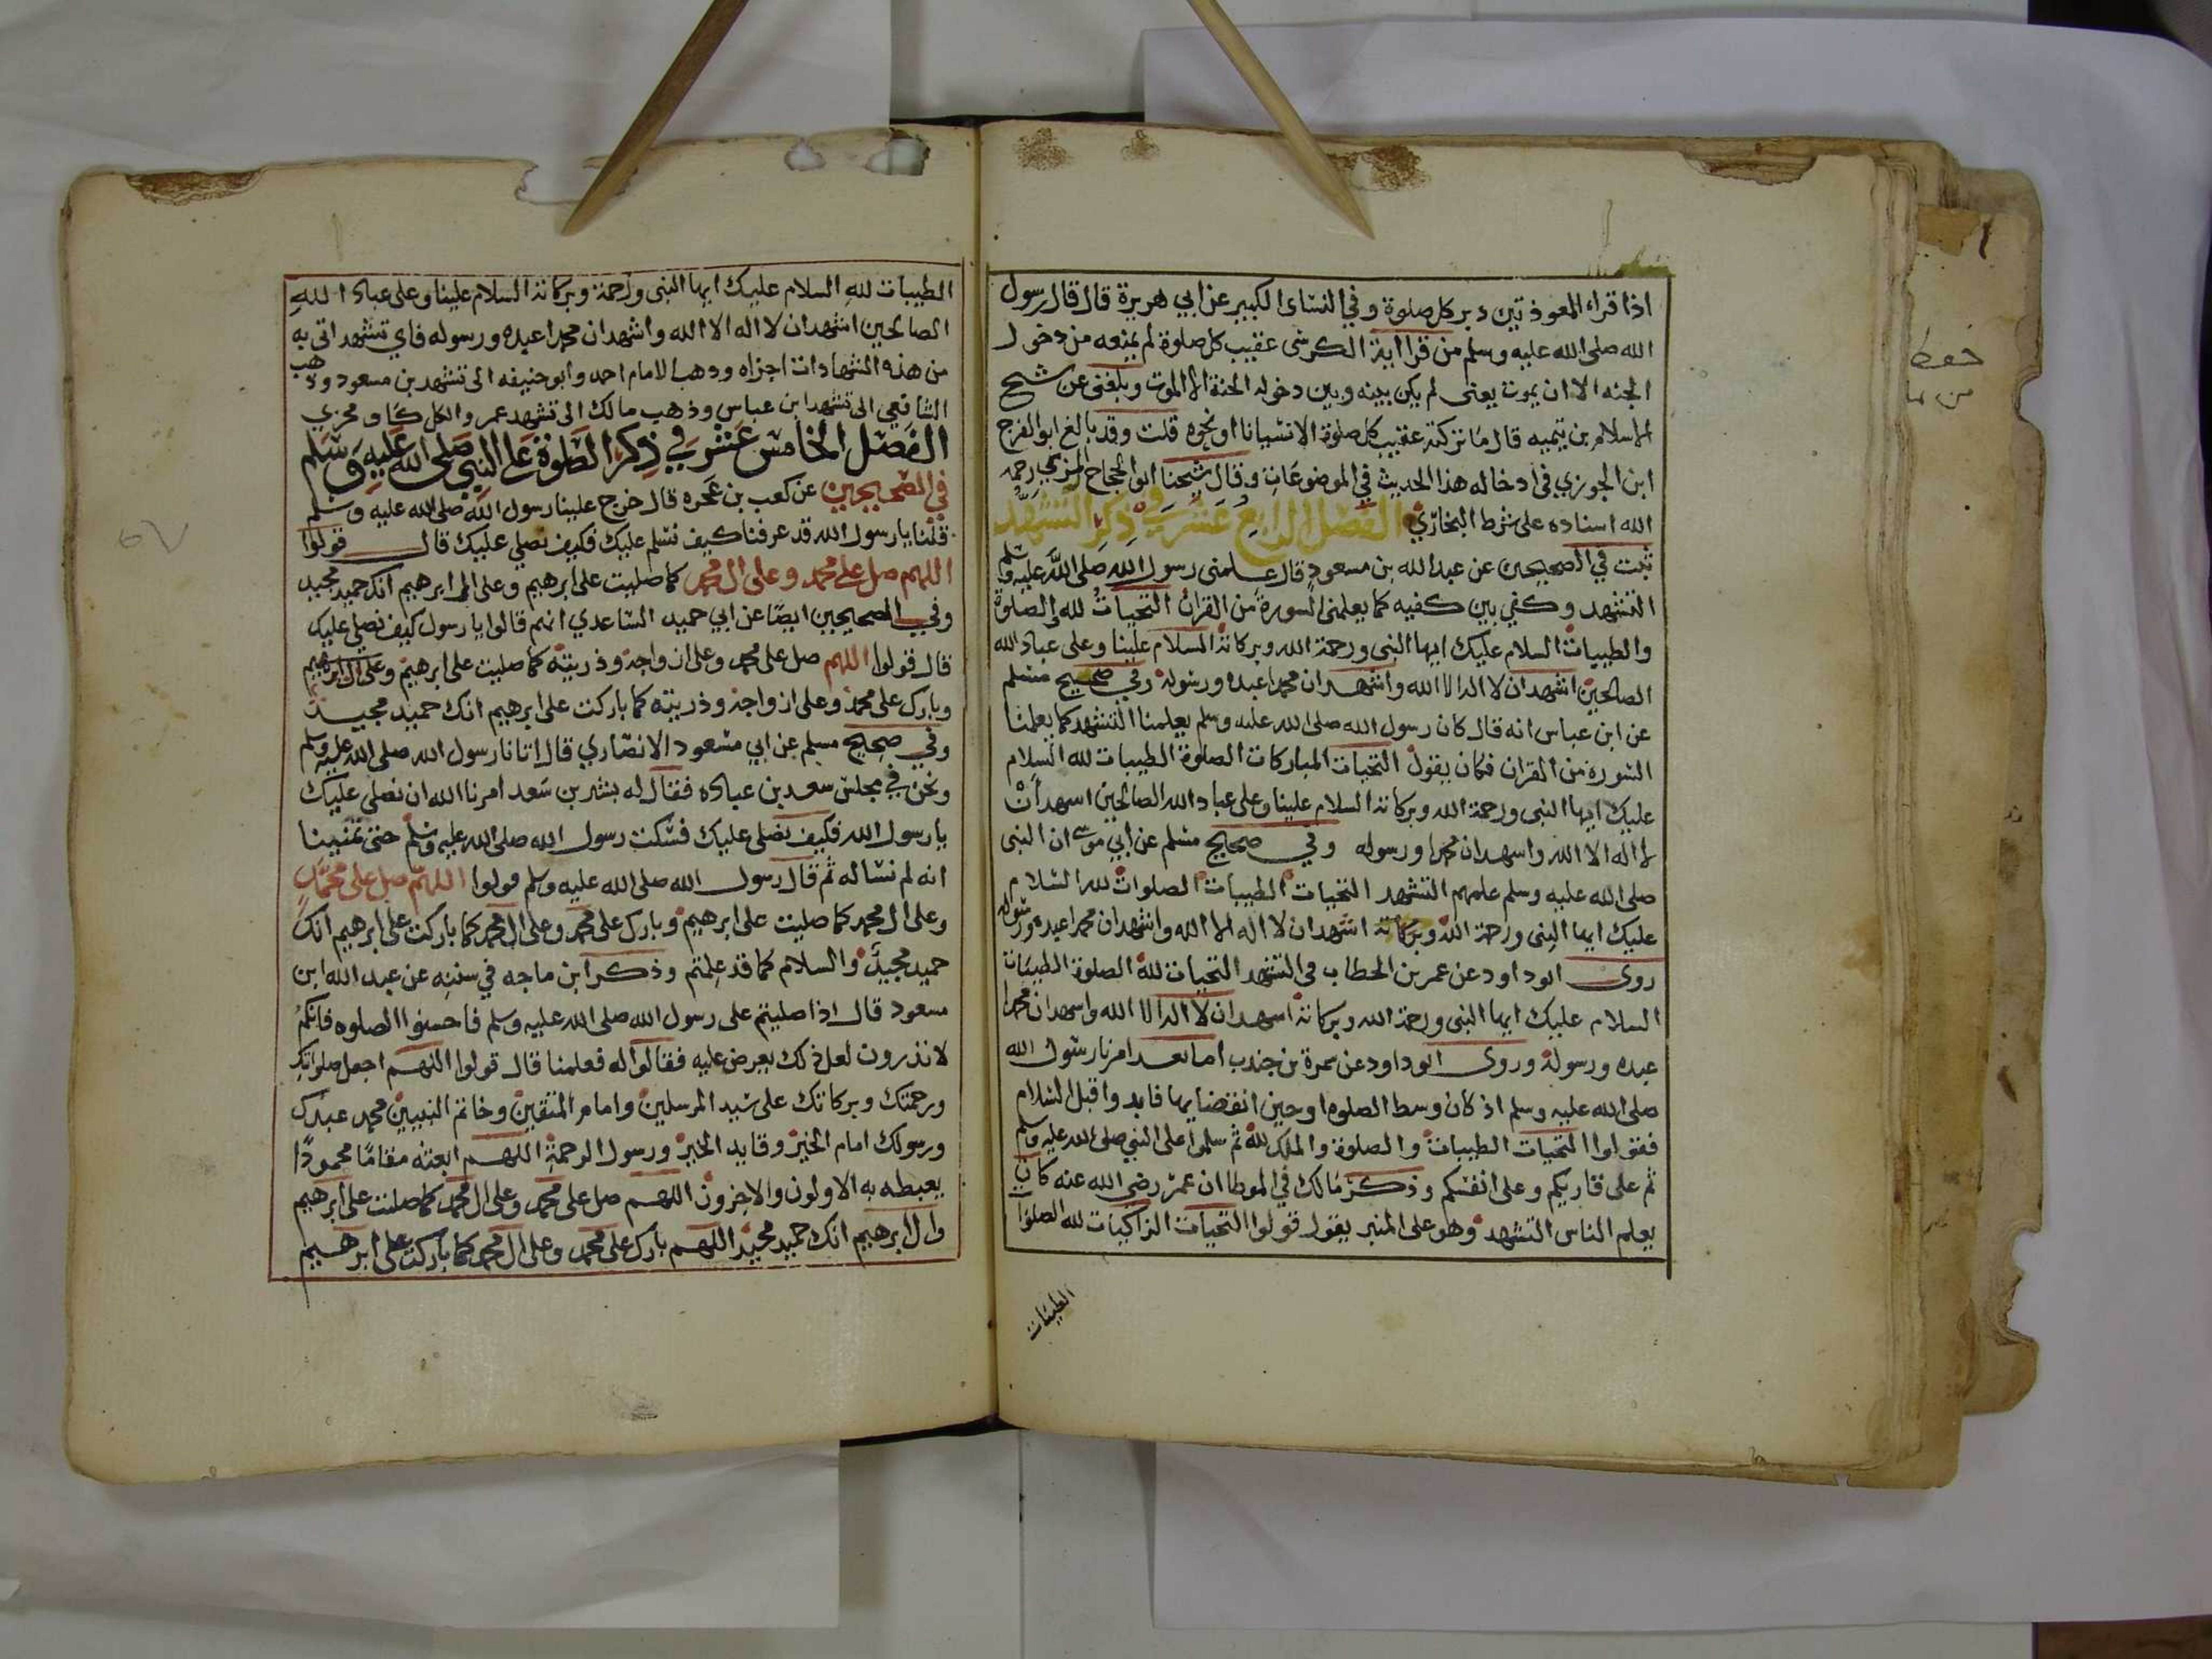 اذا قراء المعوذتين دبر كل صلوة وفي النساى الكبير عن ابي هريرة قال قال رسول
الله صلى الله عليه وسلم من قرا اية الكرسى عقيب كل صلوة لم يمنعه من دخول
الجنه الا ان يموت يعنى لم يكن بينه وبين دخوله الجنة الا الموت وبلغنى عن شيخ
الاسلام بن تيميه قال ما تركته عقيب كل صلوة الا نسيانا او نحوه قلت وقد بالغ ابو الفرج
ابن الجوزي فى ادخاله هذا الحديث في الموضوعات وقال شيخنا ابو الحجاج المزي رحمه
الله اسناده على شرط البخاري الفصل الرابع عشر في ذكر التشهد
ثبت في الصحيحين عن عبد الله بن مسعود قال علمنى رسول الله صلى الله عليه وسلم
التشهد وكفي بين كفيه كما يعلمنى السورة من القران التحيات لله والصلوة
والطيبات السلام عليك ايها النبى ورحمة الله وبركاته السلام علينا وعلى عباد الله
الصالحين اشهد ان لا اله الا الله واشهد ان محمدا عبده ورسوله وفي صحيح مسلم
عن ابن عباس انه قال كان رسول الله صلى الله عليه وسلم يعلمنا التشهد كما يعلمنا
السورة من القران فكان يقول التحيات المباركات الصلوة الطيبات لله السلام
عليك ايها النبى ورحمة الله وبركاته السلام علينا وعلى عباد الله الصالحين اسهد ان
لا اله الا الله واسهد ان محمدا ورسوله وفي صحيح مسلم عن ابي موسى ان النبى
صلى الله عليه وسلم علمهم التشهد التحيات الطيبات الصلوات لله السلام
عليك ايها النبى ورحمة الله وبركاته اشهد ان لا اله الا الله واشهد ان محمدا عبده ورسوله
روى ابو داود عن عمر بن الخطاب فى التشهد التحيات لله الصلوة الطيبات
السلام عليك ايها النبى ورحمة الله وبركاته اسهد ان لا اله الا الله واسهد ان محمدا
عبده ورسوله وروى ابو داود عن سمرة بن جندب اما بعد امرنا رسول الله
صلى الله عليه وسلم اذ كان وسط الصلوه او حين انقضايها فابدوا قبل السلام
فقولوا التحيات الطيبات والصلوة والملك لله ثم سلموا على النبي صلى الله عليه وسلم
ثم على قاريكم وعلى انفسكم وذكر مالك في الموطا ان عمر رضى الله عنه كان
يعلم الناس التشهد وهو على المنبر يقول قولوا التحيات الزاكيات لله الصلوات
الطيبات
الطيبات لله السلام عليك ايها النبى ورحمة وبركاته السلام علينا وعلى عباد الله
الصالحين اشهد ان لا اله الا الله واشهد ان محمدا عبده ورسوله فاي تشهد اتى به
من هذه الشهادات اجزاه وذهب الامام احمد وابو حنيفه الى تشهد بن مسعود وذهب
الشافعي الى تشهد ابن عباس وذهب مالك الى تشهد عمر والكل كاف مجزي
الفصل الخامس عشر في ذكر الصلوة على النبي صلى الله عليه وسلم
في الصحيحين عن كعب بن عجره قال خرج علينا رسول الله صلى الله عليه وسلم
قلنا يا رسول الله قد عرفنا كيف نسلم عليك فكيف نصلي عليك قال قولوا
اللهم صل على محمد وعلى ال محمد كما صليت على ابرهيم وعلى ال ابرهيم انك حميد مجيد
وفي الصحيحين ايضا عن ابي حميد الساعدي انهم قالوا يا رسول كيف نصلي عليك
قال قولوا اللهم صل على محمد وعلى ازواجه وذريته كما صليت على ابرهيم وعلى ال ابرهيم
وبارك على محمد وعلى ازواجه وذريته كما باركت على ابرهيم انك حميد مجيد
وفي صحيح مسلم عن ابي مسعود الانصاري قال اتانا رسول الله صلى الله عليه وسلم
ونحن في مجلس سعد بن عباده فقال له بشر بن سعد امرنا الله ان نصلى عليك
يا رسول الله فكيف نصلى عليك فسكت رسول الله صلى الله عليه وسلم حتى تمنينا
انه لم نساله ثم قال رسول الله صلى الله عليه وسلم قولوا اللهم صل على محمد
وعلى ال محمد كما صليت على ابرهيم وبارك على محمد وعلى ال محمد كما باركت على ابرهيم انك
حميد مجيد والسلام كما قد علمتم وذكر ابن ماجه في سننه عن عبد الله ابن
مسعود قال اذا صليتم على رسول الله صلى الله عليه وسلم فاحسنوا الصلوه فانكم
لا تدرون لعل ذلك يعرض عليه فقالوا له فعلمنا قال قولوا اللهم اجعل صلواتك
ورحمتك وبركاتك على سيد المرسلين وامام المتقين وخاتم النبيين محمد عبدك
ورسولك امام الخير وقايد الخير ورسول الرحمة اللهم ابعثه مقاما محمودا
يغبطه به الاولون والاخرون اللهم صل على محمد وعلى ال محمد كما صليت على ابرهيم
وال ابرهيم انك حميد مجيد اللهم بارك على محمد وعلى ال محمد كما باركت على ابرهيم